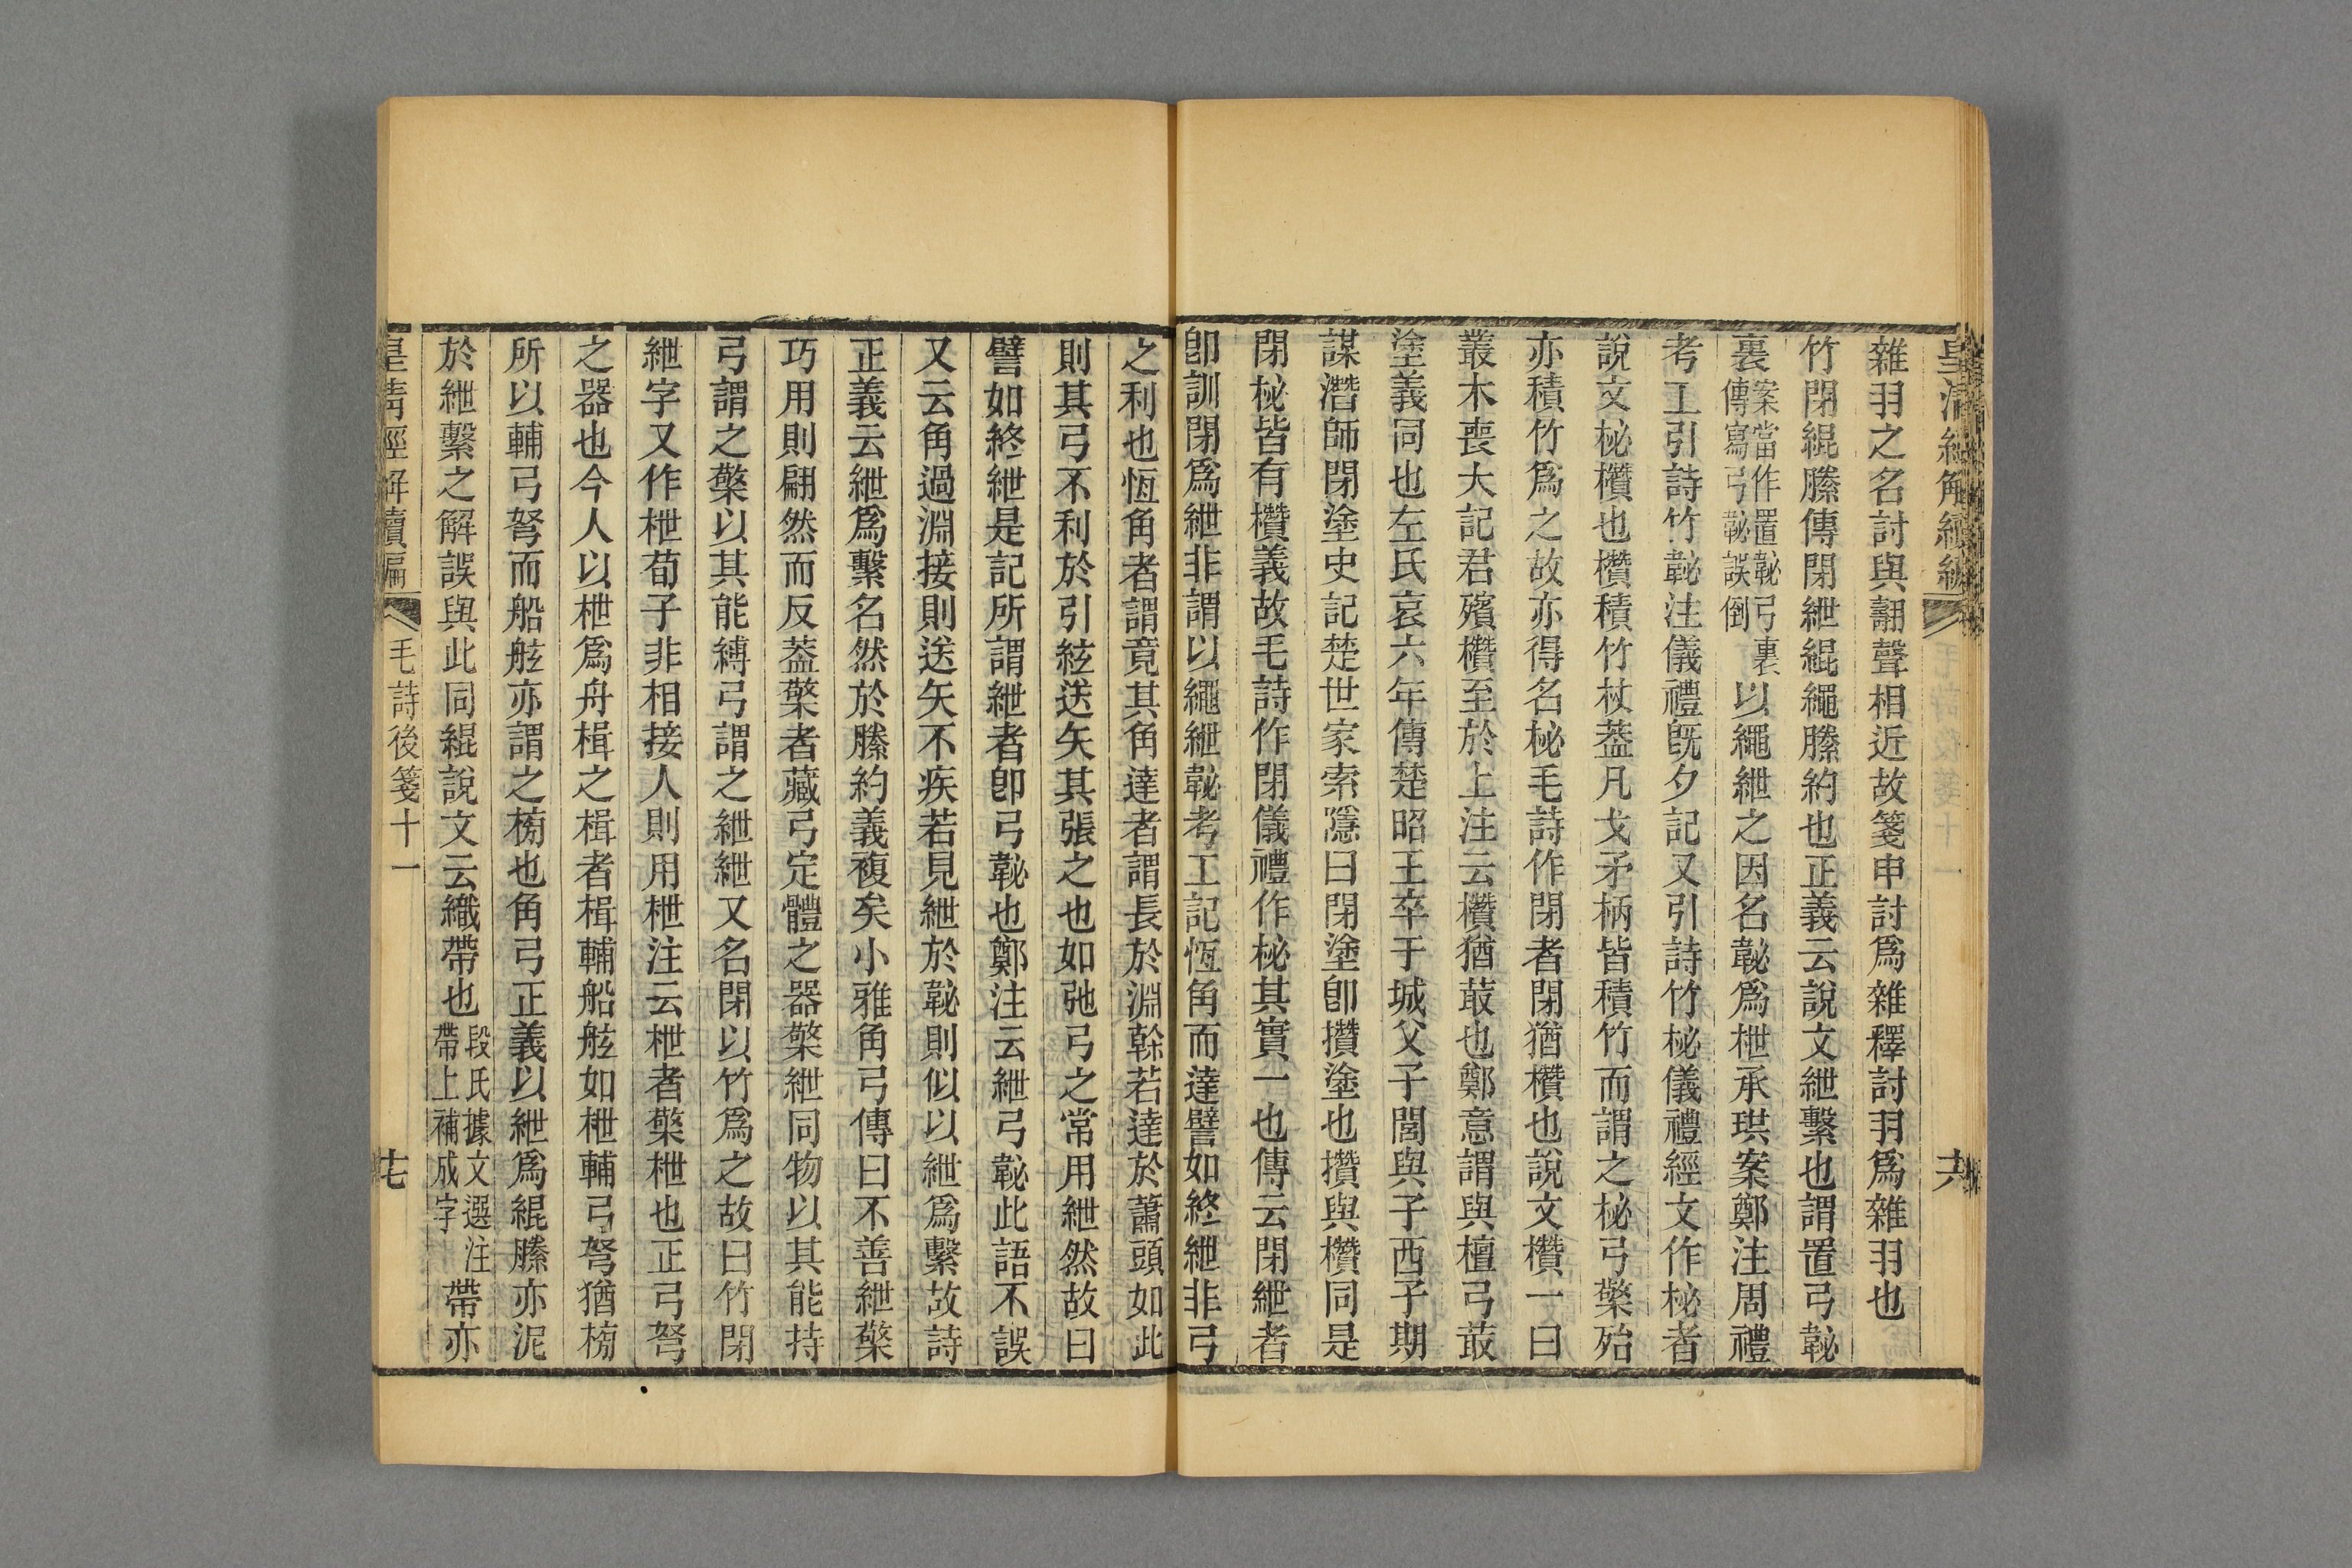 皇清經解續編
十六
雜羽之名討與翿聲相近故箋申討爲雜釋討羽爲雜羽也
竹閉緄縢傳閉紲緄繩縢約也正義云說文紲繫也謂置弓䪐
裏案當作置䪐弓裏傳寫弓䪐誤倒以繩紲之因名䪐爲枻承珙案鄭注周禮
考工引詩竹䪐注儀禮旣夕記又引詩竹柲儀禮經文作柲者
說文柲欑也欑積竹杖葢凡戈矛柄皆積竹而謂之柲弓檠殆
亦積竹爲之故亦得名柲毛詩作閉者閉猶欑也說文欑一曰
叢木喪大記君殯欑至於上注云欑猶菆也鄭意謂與檀弓菆
塗義同也左氏哀六年傳楚昭王卒于城父子閭與子西子期
謀潛師閉塗史記楚世家索隱曰閉塗卽攢塗也攢與欑同是
閉柲皆有欑義故毛詩作閉儀禮作柲其實一也傳云閉紲者
卽訓閉爲紲非謂以繩紲䪐考工記恆角而達譬如終紲非弓
之利也恆角者謂竟其角達者謂長於淵榦若達於蕭頭如此
則其弓不利於引絃送矢其張之也如弛弓之常用紲然故曰
譬如終紲是記所謂紲者卽弓䪐也鄭注云紲弓䪐此語不誤
又云角過淵接則送矢不疾若見紲於䪐則似以紲爲繫故詩
正義云紲爲繫名然於縢約義複矣小雅角弓傳曰不善紲檠
巧用則翩然而反葢檠者藏弓定體之器檠紲同物以其能持
弓謂之檠以其能縛弓謂之紲紲又名閉以竹爲之故曰竹閉
紲字又作枻荀子非相接人則用枻注云枻者檠枻也正弓弩
之器也今人以枻爲舟楫之楫者楫輔船舷如枻輔弓弩猶榜
所以輔弓弩而船舷亦謂之榜也角弓正義以紲爲緄縢亦泥
於紲繫之解誤與此同緄說文云織帶也段氏據文選注帶上補成字帶亦
皇清經解續編
毛詩後箋十一
十七